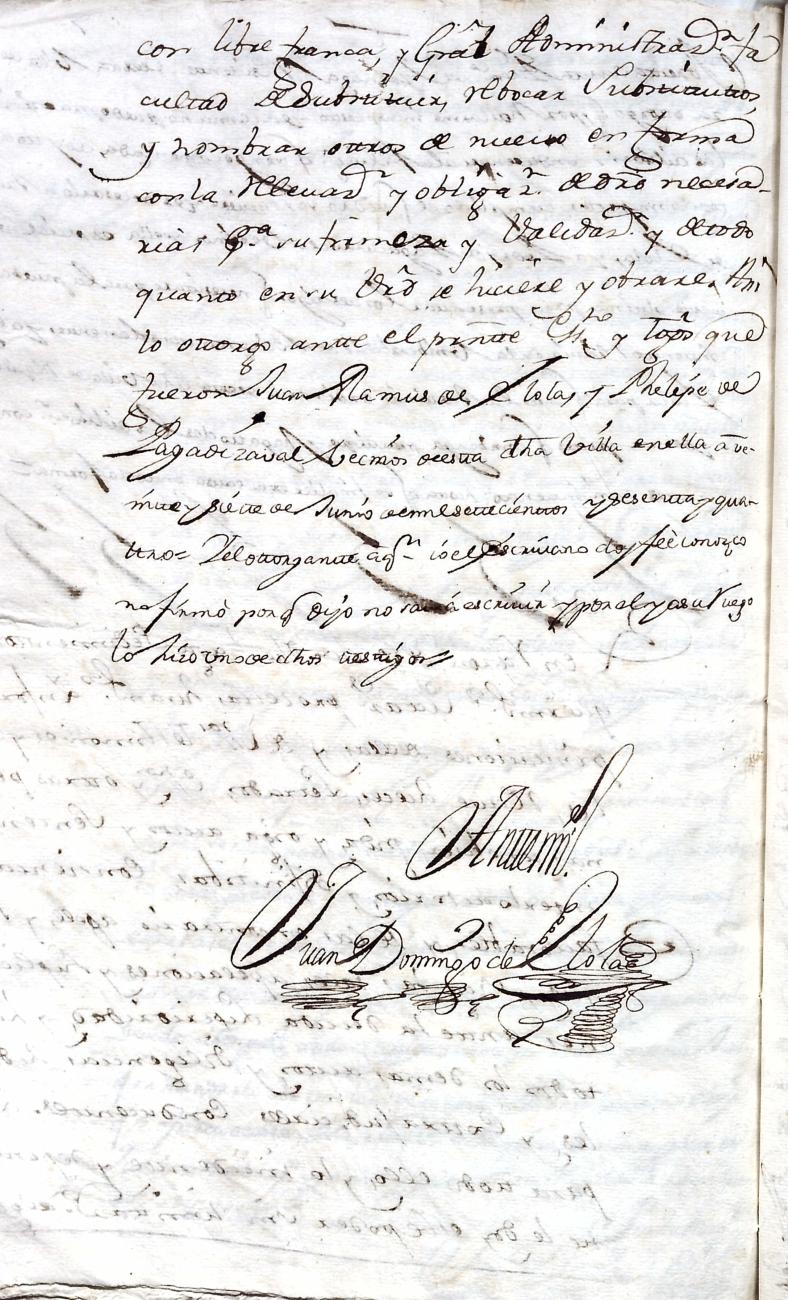 con libre franca, y Gräl Administrasⁿ. fa
cultad de Substituir, rebocar Substitutos,
y nombrar otros de nuevo en forma
con la relevasⁿ y obligasⁿ. de dro necesa-
rias p.ª su firmeza y Validasⁿ. y de todo
quanto en su Vrd se hiciere y obrare. Asi
lo otorgo ante el prnte Ess.no y tgos que
fueron Juan Ramus de Olola, y Phelipe de
Pagadizaval Vecinos de esta dha Villa en ella a ve-
inte y siete de Junio de mil setecientos y sesenta y qua-
tro= Y el otorgante a qⁿ. io el Escrivano doy feè conozco
no firmò porq dijo no savia escrivir y por el y a su ruego
lo hizo uno de dhos testigos=
Antemi
Juan Domingo de Olola